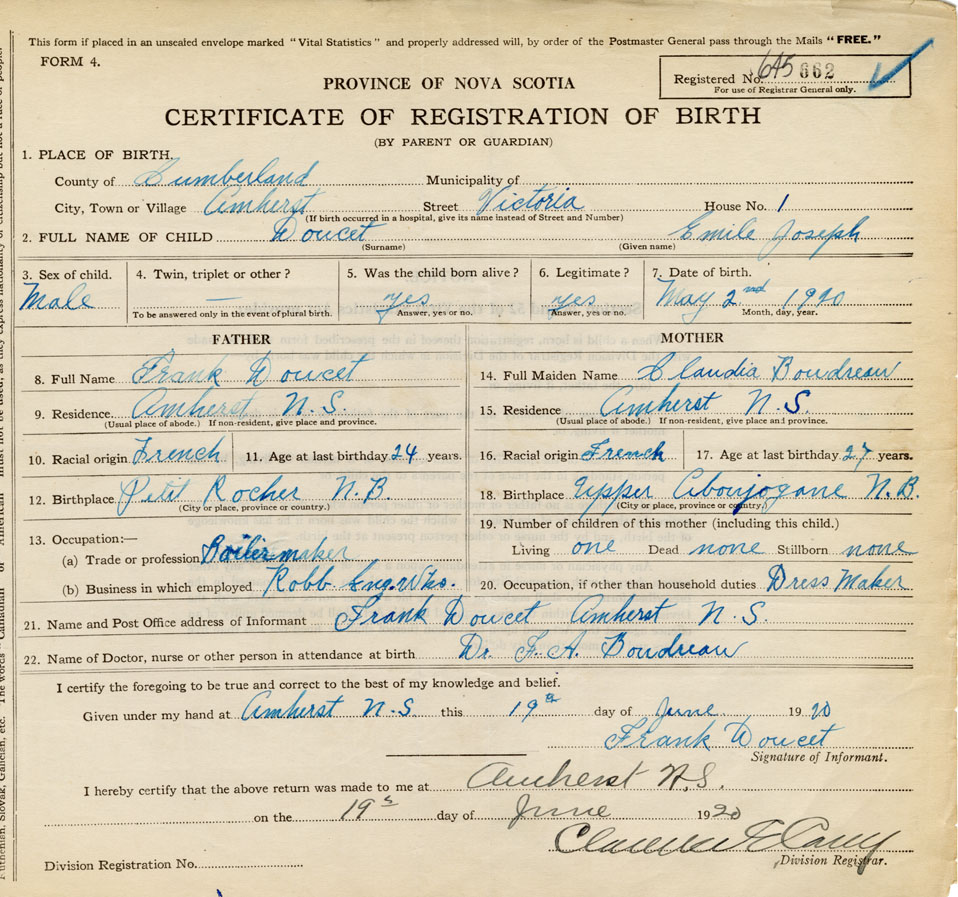 This form if placed in an unsealed envelope marked "Vital Statistics" and properly addressed will, by order of the Postmaster General pass through the Mails "FREE."
FORM 4.
Registered No. 645 662
For use of Registrar General only.
PROVINCE OF NOVA SCOTIA
CERTIFICATE OF REGISTRATION OF BIRTH
(BY PARENT OR GUARDIAN)
1. PLACE OF BIRTH.
County of Cumberland Municipality of
City, Town or Village Amherst Street Victoria House No. 1
(If birth occurred in a hospital, give its name instead of Street and Number)
2. FULL NAME OF CHILD Doucet Emile Joseph
(Surname) (Given name)
3. Sex of child. 4. Twin, triplet or other? 5. Was the child born alive? 6. Legitimate? 7. Date of birth.
Male — yes yes May 2nd 1920
To be answered only in the event of plural birth. Answer, yes or no. Answer, yes or no. Month, day, year.
FATHER MOTHER
8. Full Name Frank Doucet 14. Full Maiden Name Claudia Boudreau
9. Residence Amherst N.S. 15. Residence Amherst N.S.
(Usual place of abode.) If non-resident, give place and province. (Usual place of abode.) If non-resident, give place and province.
10. Racial origin French 11. Age at last birthday 24 years. 16. Racial origin French 17. Age at last birthday 27 years.
12. Birthplace Petit Rocher N.B 18. Birthplace Upper Aboujogane N.B.
(City or place, province or country.) (City or place, province or country.)
13. Occupation:— 19. Number of children of this mother (including this child.)
(a) Trade or profession Boilermaker Living one Dead none Stillborn none
(b) Business in which employed Robb Eng. Wks. 20. Occupation, if other than household duties Dress Maker
21. Name and Post Office address of Informant Frank Doucet Amherst N.S.
22. Name of Doctor, nurse or other person in attendance at birth Dr. F. A. Boudreau
I certify the foregoing to be true and correct to the best of my knowledge and belief.
Given under my hand at Amherst N.S. this 19th day of June 1920
Frank Doucet
Signature of Informant.
I hereby certify that the above return was made to me at Amherst N.S.
on the 19 day of June 1920
Division Registrar.
Division Registration No.